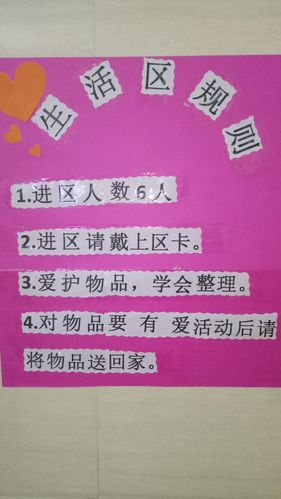 生活区规则
1.进区人数6人
2.进区请戴上区卡。
3.爱护物品，学会整理。
4.对物品要 有 爱活动后请
将物品送回家。